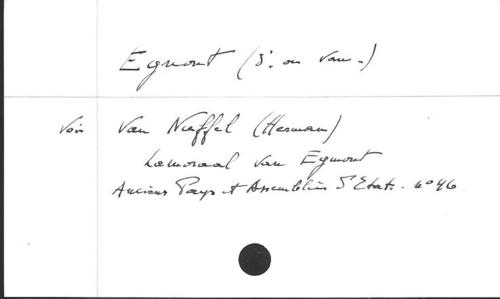 Egmont (d' ou van -)
Voir Van Nuffel (Herman)
Lamoraal van Egmont
Anciens Pays et Assemblées d'Etats. n° 46